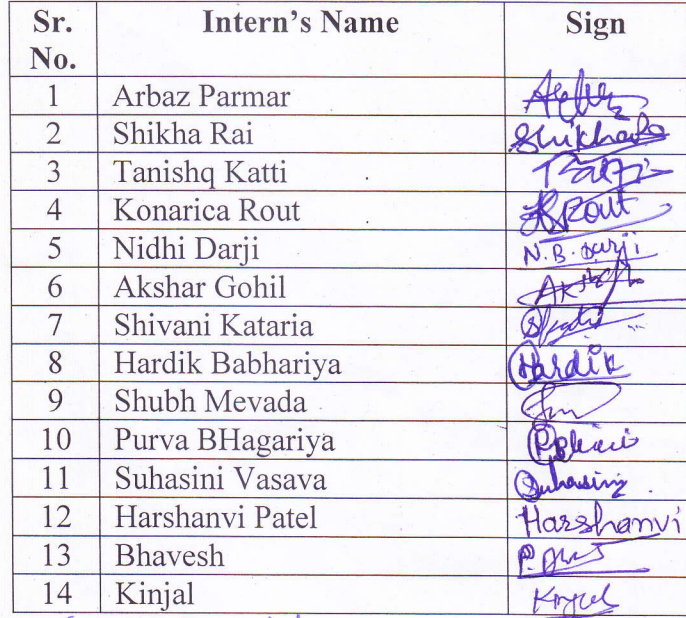 Sr. No. Intern's Name Sign
1 Arbaz Parmar
2 Shikha Rai
3 Tanishq Katti
4 Konarica Rout
5 Nidhi Darji N.B. Darji
6 Akshar Gohil
7 Shivani Kataria
8 Hardik Babhariya Hardik
9 Shubh Mevada
10 Purva BHagariya
11 Suhasini Vasava Suhasini
12 Harshanvi Patel Harshanvi
13 Bhavesh
14 Kinjal